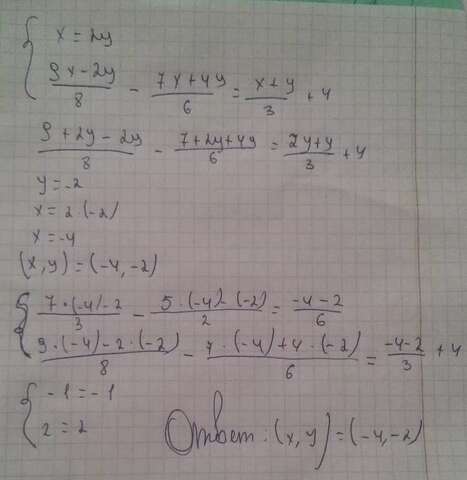 x = 2y
(9x-2y)/8 - (7x+4y)/6 = (x+y)/3 + 4
(9+2y-2y)/8 - (7+2y+4y)/6 = (2y+y)/3 + 4
y = -2
x = 2·(-2)
x = -4
(x,y) = (-4,-2)
(7·(-4)-2)/3 - (5·(-4)-(-2))/2 = (-4-2)/6
(9·(-4)-2·(-2))/8 - (7·(-4)+4·(-2))/6 = (-4-2)/3 + 4
-1 = -1
2 = 2
Ответ: (x,y) = (-4,-2)